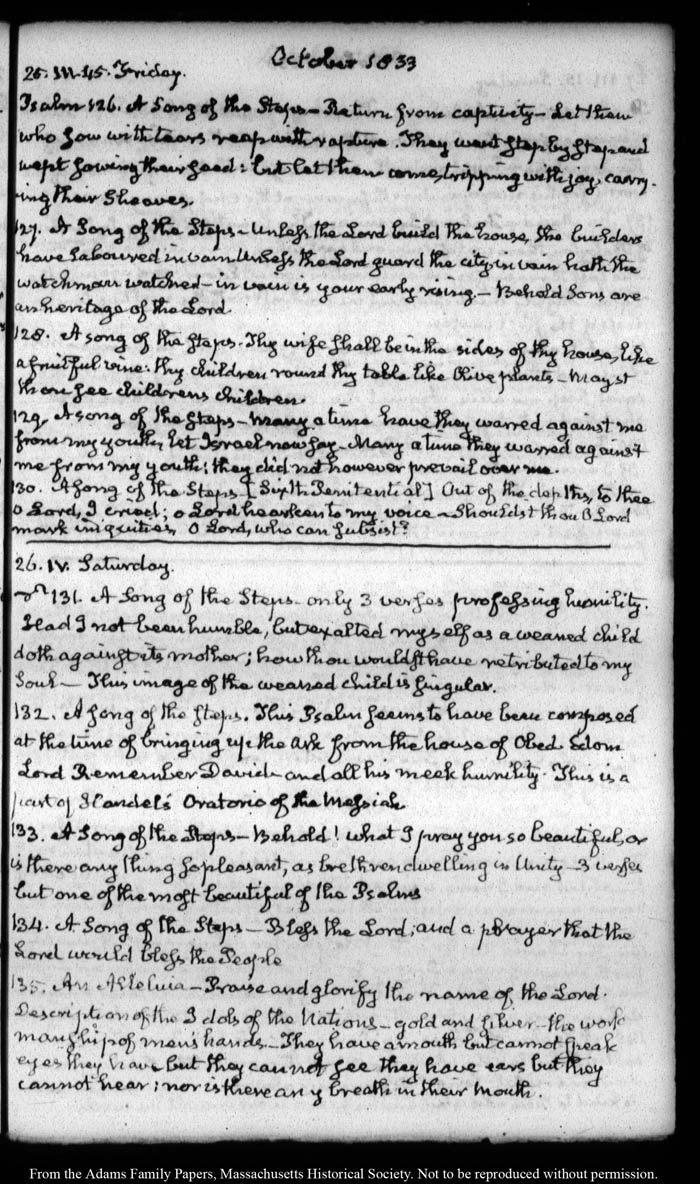 October 1833
25. III.45. Friday.
Psalm 126. A Song of the Steps – Return from captivity – Let them
who sow with tears reap with rapture. They went step by step and
wept sowing their seed: but let them come, tripping with joy, carry-
ing their Sheaves.
127. A Song of the Steps – Unless the Lord build the house, the builders
have laboured in vain. Unless the Lord guard the city, in vain hath the
watchman watched – in vain is your early rising. – Behold Sons are
an heritage of the Lord.
128. A song of the steps. Thy wife shall be in the sides of thy house, like
a fruitful vine: thy children round thy table like Olive plants – Mayst
thou see childrens children.
129. A song of the steps – Many a time have they warred against me
from my youth, let Israel now say – Many a time they warred against
me from my youth; they did not however prevail over me.
130. A Song of the Steps [Sixth Penitential] Out of the depths, to thee
O Lord, I cried; O Lord hearken to my voice – Shouldst thou O Lord
mark iniquities, O Lord, who can subsist?
26. IV. Saturday.
131. A Song of the Steps – only 3 verses professing humility.
Had I not been humble, but exalted myself as a weaned child
doth against its mother; how thou wouldst have retributed to my
Soul – This image of the weaned child is singular.
132. A song of the steps. This Psalm seems to have been composed
at the time of bringing up the Ark from the house of Obed Edom
Lord Remember David – and all his meek humility. This is a
part of Handel's Oratorio of the Messiah
133. A Song of the Steps – Behold! what I pray you so beautiful, or
is there any thing so pleasant, as brethren dwelling in Unity – 3 verses
but one of the most beautiful of the Psalms
134. A Song of the Steps – Bless the Lord; and a prayer that the
Lord would bless the People
135. An Alleluia – Praise and glorify the name of the Lord.
Description of the Idols of the Nations – gold and silver – the work
manship of men's hands. – They have a mouth but cannot speak
eyes they have but they cannot see they have ears but they
cannot hear; nor is there any breath in their mouth.
From the Adams Family Papers, Massachusetts Historical Society. Not to be reproduced without permission.